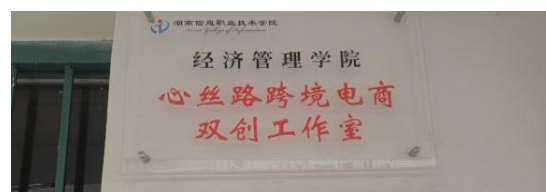 湖南信息职业技术学院
经济管理学院
心丝路跨境电商
双创工作室